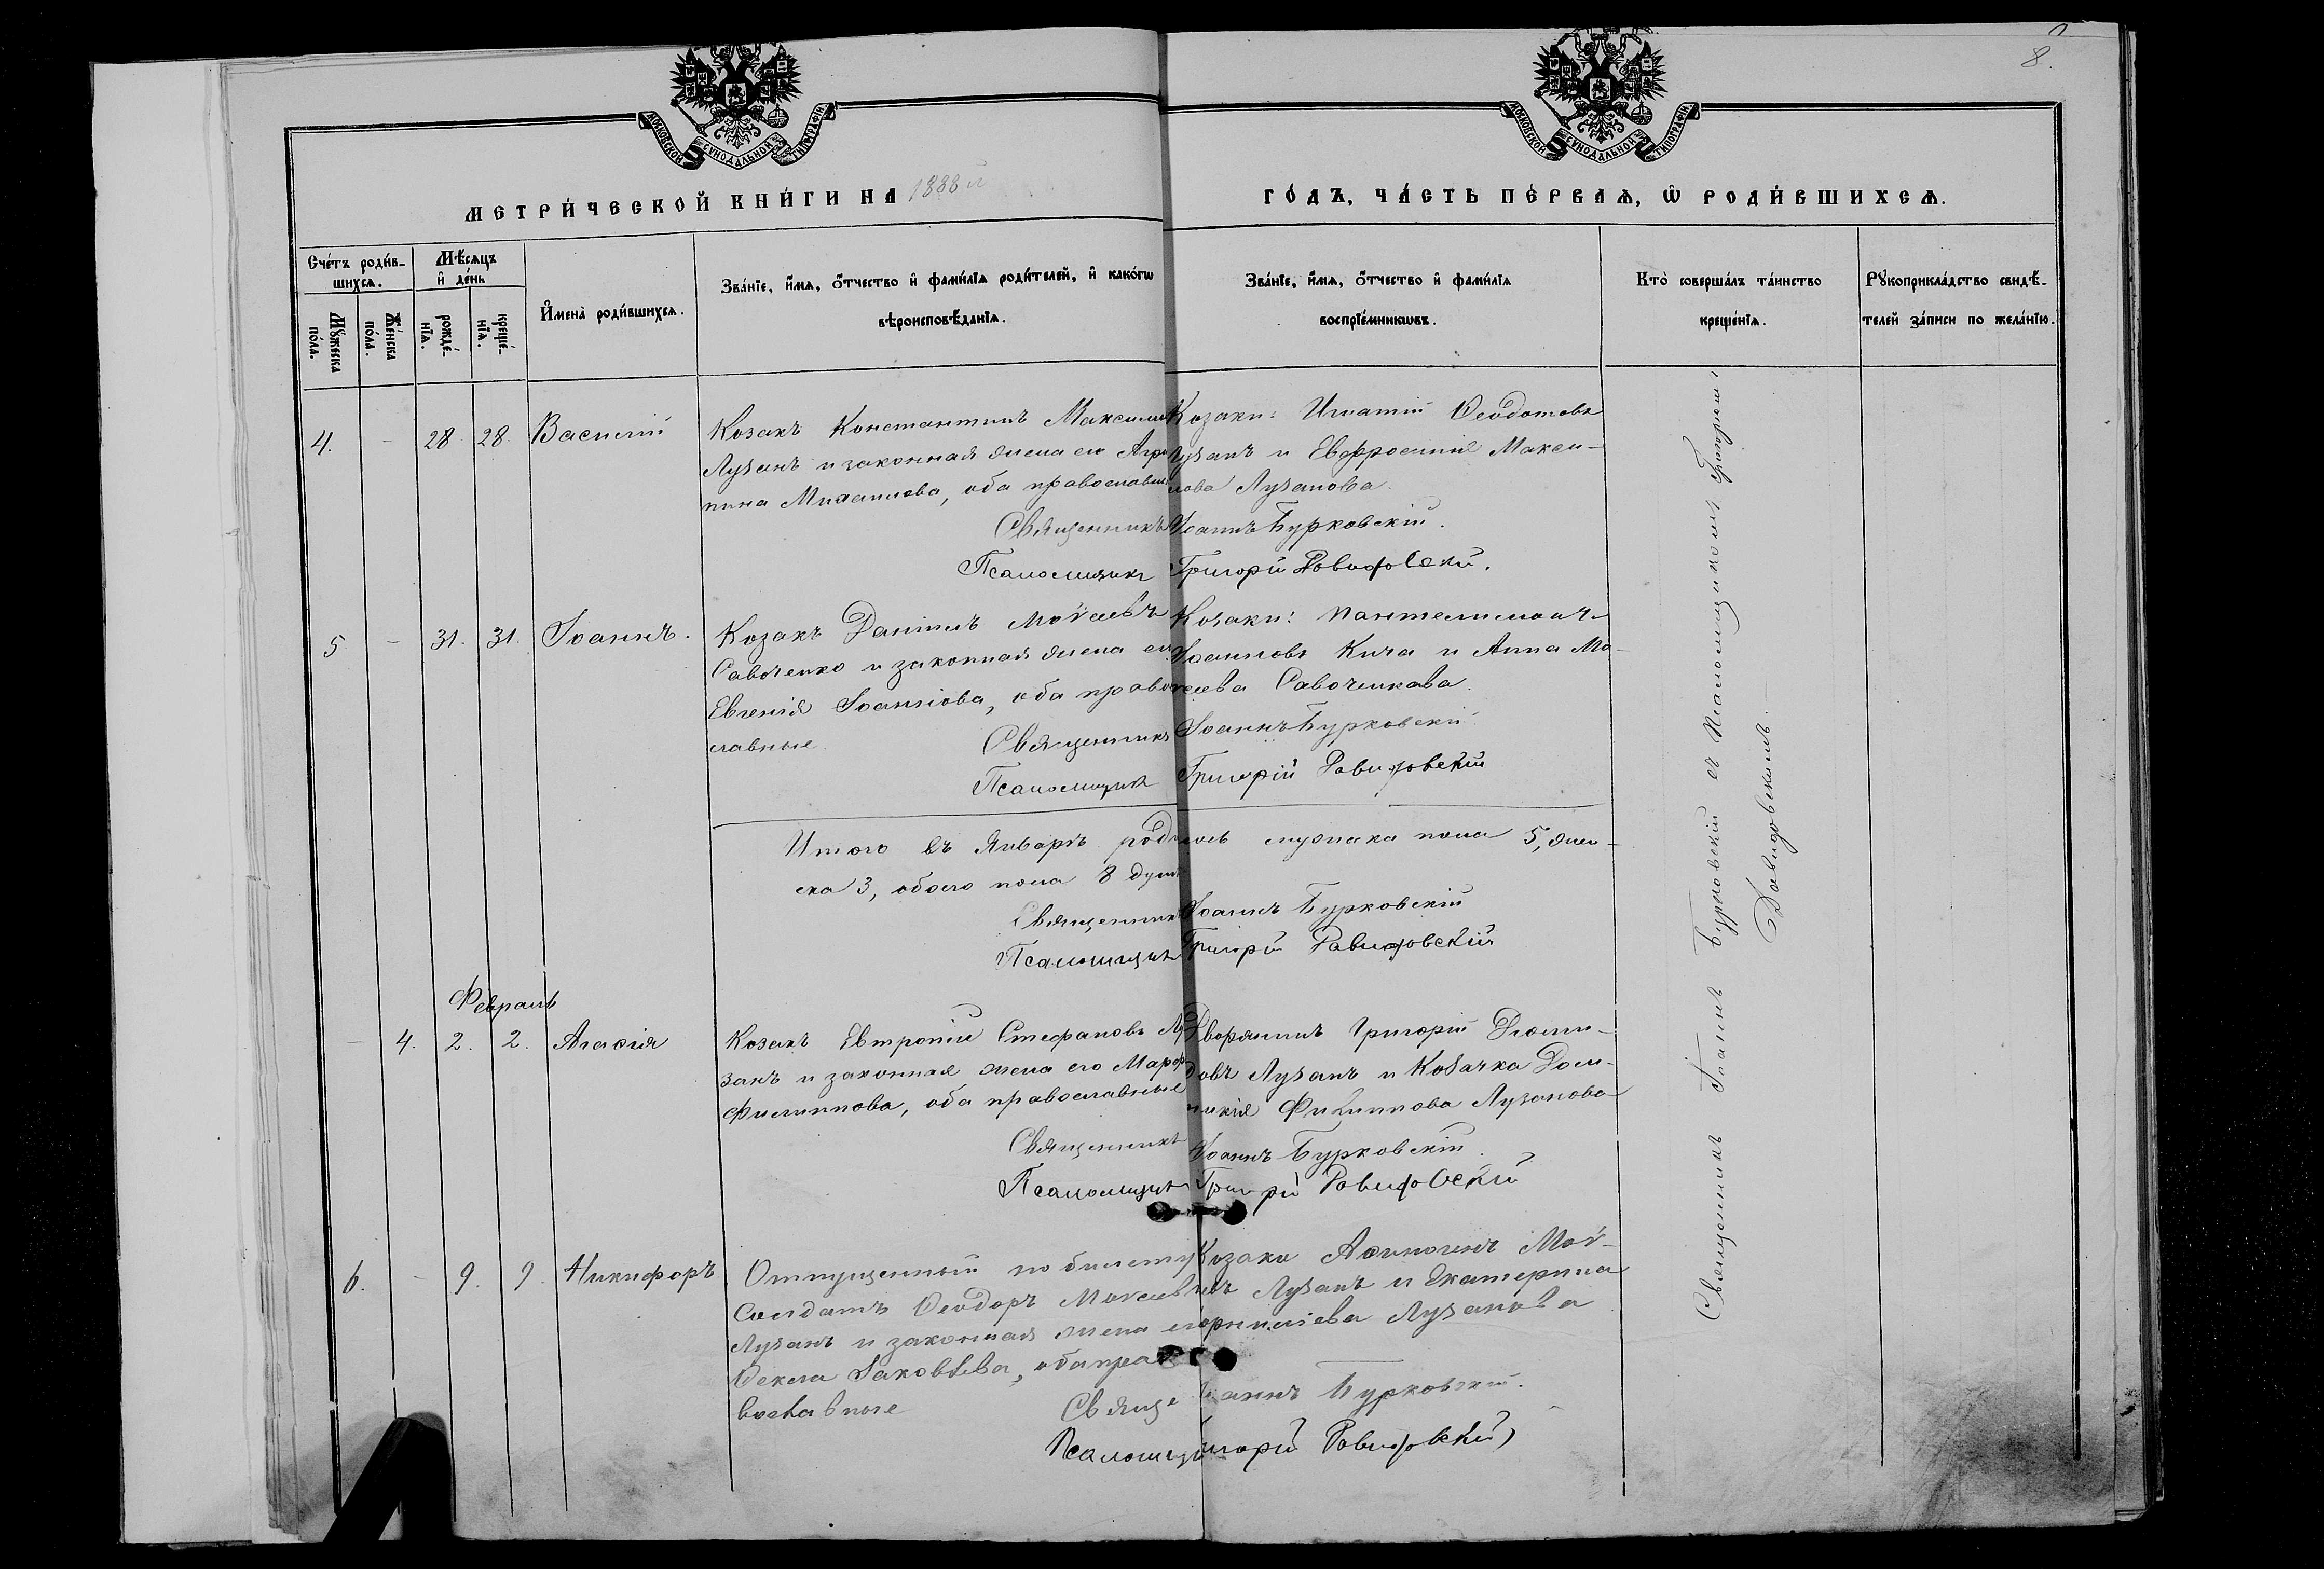 8.
МОСКОВСКОЙ СѴНОДАЛЬНОЙ ТИПОГРАФІИ
МОСКОВСКОЙ СѴНОДАЛЬНОЙ ТИПОГРАФІИ
МЕТРИ́ЧЕСКОЙ КНИ́ГИ НА 1888 й
ГО́ДЪ, ЧА́СТЬ ПЕ́РВАѦ, Ѽ РОДИ́ВШИХСѦ.
Сче́тъ роди́в-
шихсѧ.
Мѣ́сѧцъ
и҆ де́нь
Мꙋ́жеска
по́ла.
Же́нска
по́ла.
рожде́-
нїѧ.
креще́-
нїѧ.
И҆мена̀ роди́вшихсѧ.
Зва́нїе, и҆́мѧ, ѻ҆́тчество и҆ фами́лїѧ роди́телей, и҆ како́гѡ
вѣроисповѣ́данїѧ.
Зва́нїе, и҆́мѧ, ѻ҆́тчество и҆ фами́лїѧ
воспрїе́мникѡвъ.
Кто̀ соверша́лъ та́инство
креще́нїѧ.
Рꙋкоприкла́дство свидѣ́-
телей за́писи по жела́нїю.
4. - 28. 28. Василій
Козакъ Константинъ
Лузанъ и законная жена его
пина Михаилова, оба православн
Козаки: Игнатій Ѳеодотовъ
Лузанъ и Евфросинія Макси-
мова Лузанова.
Священникъ Іоаннъ Бурковскій.
Псаломщикъ Григорій
5 - 31. 31. Іоаннъ.
Козакъ Даніилъ Моѵсеевъ
Савченко и законная жена его
Евгенія Іоаннова, оба право
славные
Козаки: Пантелеимонъ
Іоанновъ Кича и Анна Мо-
ѵсеева Савочникова.
Священникъ Іоаннъ Бурковскій
Псаломщикъ Григорій
Итого въ Январѣ родилось мужска пола 5, жен-
ска 3, обоего пола 8 душъ
Священникъ Іоаннъ Бурковскій
Псаломщикъ Григорій
Февраль
- 4. 2. 2. Агаѳія
Козакъ Евтропій Стефановъ Лу
занъ и законная жена его Марѳ
Филиппова, оба православные
Дворянинъ Григорій Діоми-
довъ Лузанъ и Козачка Дом-
никія Филиппова Лузанова
Священникъ Іоаннъ Бурковскій.
Псаломщикъ Григорій
6. - 9. 9. Никифоръ
Отпущенный по билету
Солдатъ Ѳеодоръ Моѵсеевъ
Лузанъ и законная жена его
Ѳекла Іаковлева, оба пра
вославные
Козаки Моѵ-
Лузанъ и Екатерина
Лузанова
Іоаннъ Бурковскій.
Священникъ Іоаннъ Бурковскій съ Псаломщикомъ Григоріемъ
Давидовскимъ.